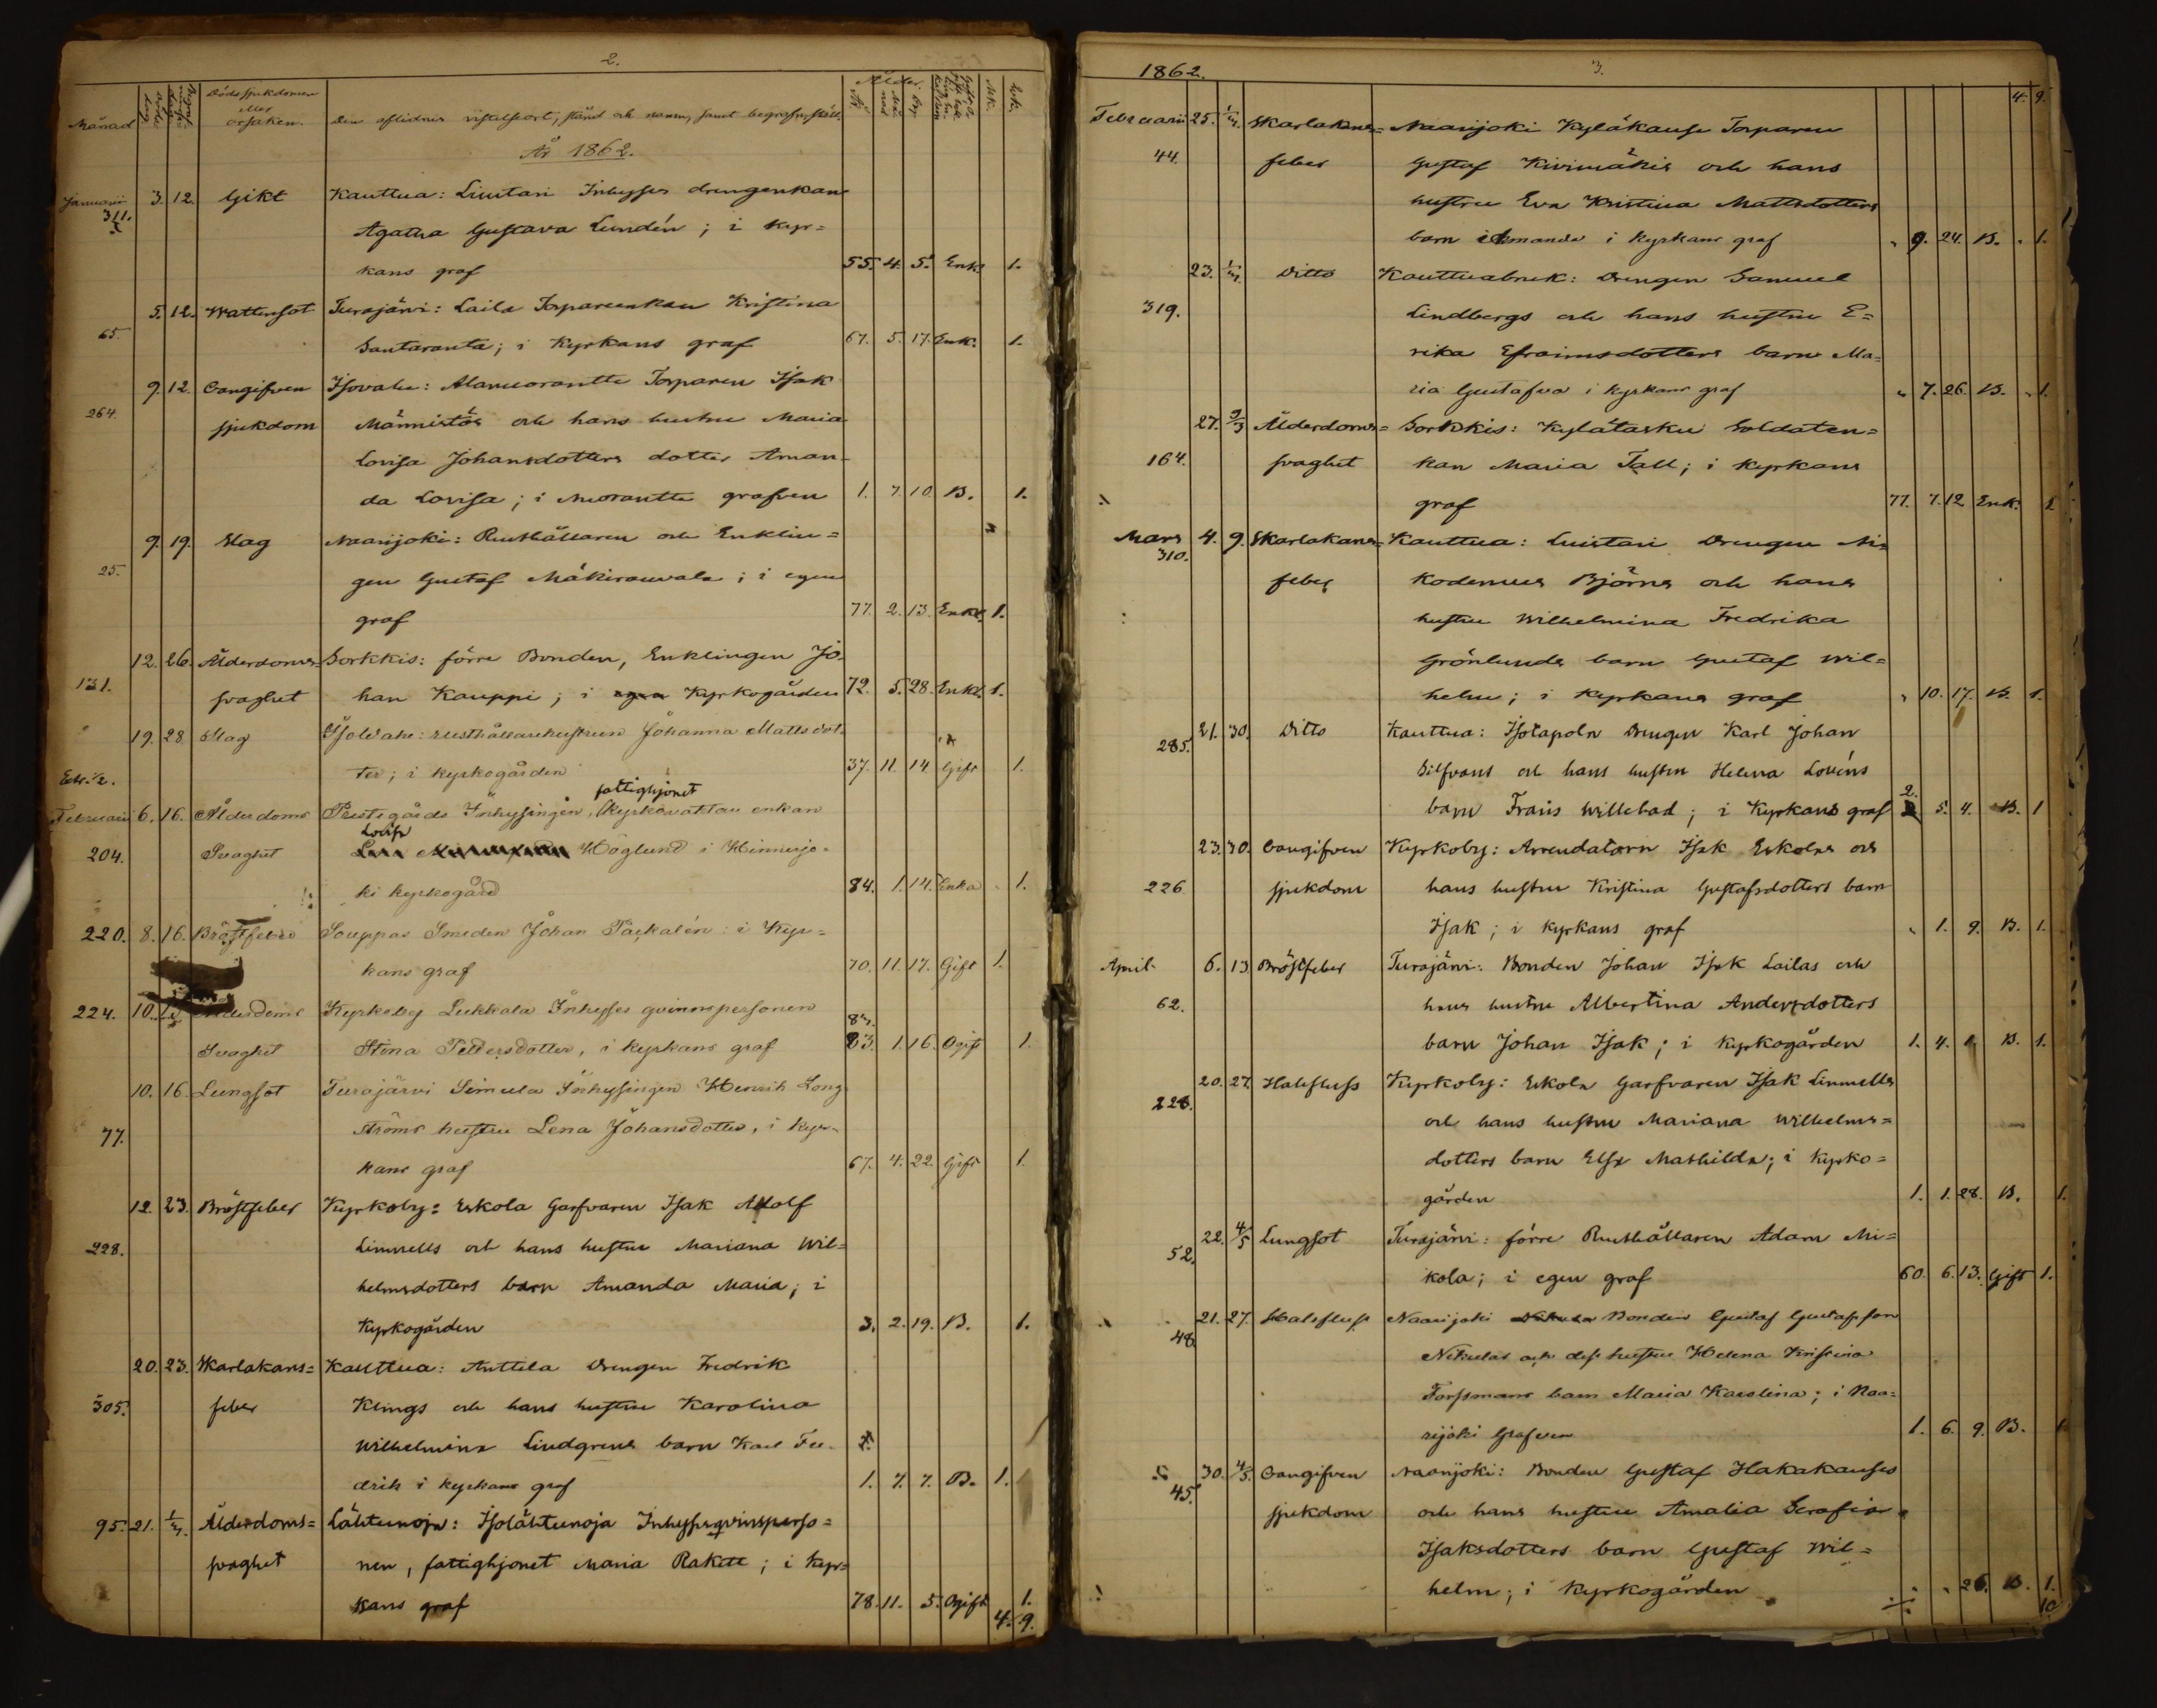 2.
Månad
Dödssjukdomen
eller
orsaken.
Den aflidnes vistelseort, stånd och namn, samt begrafn.ställe
Ålder
År
Mk.
Qvk.
År 1862.
Januarii 3. 12. Gikt Kauttua: Luutari Inhyses drengenkan
311. Agatha Gustava Lundén; i Kyr=
kans graf 55. 4. 5. Enk. 1.
5. 12. Wattensot Turajärvi: Laila Torpareenkan Kristina
65. Santaranta; i Kyrkans graf 67. 5. 17. Enk. 1.
9. 12. Oangifven Isovahe: Alamorantte Torparen Isak
264. sjukdom Männistös och hans hustru Maria
Lovisa Johansdotters dotter Aman-
da Lovisa; i Morantte grafven 1. 7. 10. B. 1.
9. 19. Slag Naarijoki: Rusthållaren och Enklin=
25. gen Gustaf Mäkirouvala; i egen
graf 77. 2. 13. Enkl. 1.
12. 26. Ålderdoms= Sorkkis: förre Bonden, Enklingen Jo-
131. svaghet han Kauppi; i Kyrkogården 72. 5. 28. Enkl. 1.
19. 28. Slag Isovahe: rusthållarehustrun Johanna Mattsdot-
ter; i kyrkogården 37. 11. 14. Gift 1.
fattighjonet
Februarii 6. 16. Ålderdoms Prestgårds Inhysingen, Kyrkovaktar enkan
Lovisa
204. Svaghet Höglund i Hinnerjo-
ki kyrkogård 84. 1. 14. Enka 1.
220. 8. 16. Bröstfeber Souppas Smeden Johan Päckalén: i Kyr=
kans graf 70. 11. 17. Gift 1.
224. 10. Ålderdoms Kyrkoby Lukkala Inhyses qvinnspersonen
Svaghet Stina Pettersdotter, i kyrkans graf 83. 1. 16. Ogift 1.
10. 16. Lungsot Turajärvi Simula Inhysingen Henrik Long
77. ströms hustru Lena Johansdotter, i kyr-
kans graf 67. 4. 22. Gift 1.
12. 23. Bröstfeber Kyrkoby: Eskola Garfvaren Isak Adolf
228. Linnells och hans hustru Mariana Wil=
helmsdotters barn Amanda Maria; i
Kyrkogården 3. 2. 19. B. 1.
20. 23. Skarlakans= Kauttua: Anttila Drengen Fredrik
305. feber Klings och hans hustru Karolina
Wilhelmina Lindgrens barn Karl Fre-
drik i kyrkans graf 1. 7. 7. B. 1.
95. 21. 1/3. Ålderdoms= Lähteenoja: Isolähteenoja Inhysesqvinsperso=
svaghet nen, fattighjonet Maria Rakett; i Kyr=
kans graf 78. 11. 5. Ogift 1.
4. 9.
1862.
3.
4. 9.
Februarii 25. 1/3. Skarlakans= Naarijoki Kyläkause Torparen
44. feber Gustaf Kivimäkis och hans
hustru Eva Kristina Mattsdotters
barn Amanda i Kyrkans graf " 9. 24. B. 1.
23. 1/3. Ditto Kauttuabruk: Drengen Samuel
319. Lindbergs och hans hustru E=
rika Efraimsdotters barn Ma=
ria Gustafva i kyrkans graf " 7. 26. B. 1.
27. 9/3 Ålderdoms= Sorkkis: Kylätasku Soldaten=
164. svaghet kan Maria Tall; i kyrkans
graf 77. 7. 12 Enk. 1
Mars 4. 9. Skarlakans= Kauttua: Luistari Drengen Ni=
310. feber kodemus Björns och hans
hustru Wilhelmina Fredrika
Grönlunds barn Gustaf Wil=
helm; i Kyrkans graf " 10. 17. B. 1.
285. 21. 30. Ditto Kauttua: Isotapola Drengen Karl Johan
Silfvans och hans hustru Helena Lovéns
barn Frans Willebad; i Kyrkans graf 2. 5. 4. B. 1
23. 30. Oangifven Kyrkoby: Arrendatorn Isak Eskolas och
226. sjukdom hans hustru Kristina Gustafsdotters barn
Isak; i kyrkans graf " 1. 9. B. 1.
April 6. 13. Bröstfeber Turajärvi: Bonden Johan Isak Lailas och
62. hans hustru Albertina Andersdotters
barn Johan Isak; i Kyrkogården 1. 4. B. 1.
20. 27. Halsfluss Kyrkoby: Eskola Garfvaren Isak Linnells
228. och hans hustru Mariana Wilhelms=
dotters barn Elsa Mathilda; i Kyrko=
gården 1. 1. 28. B. 1.
22. 4/5 Lungsot Turajärvi: förre Rusthållaren Adam Mi=
52. kola; i egen graf 60. 6. 13. Gift 1.
21. 27. Halsfluss Naarijoki Bonden Gustaf Gustafsson
48. Nikulas och dess hustru Helena Kristina
Forssmans barn Maria Karolina; i Naa=
rijoki Grafven 1. 6. 9. B. 1.
30. 4/5. Oangifven Naarijoki: Bonden Gustaf Hakakauses
45. sjukdom och hans hustru Amalia Serafia
Isaksdotters barn Gustaf Wil=
helm; i Kyrkogården " 26. B. 1.
10